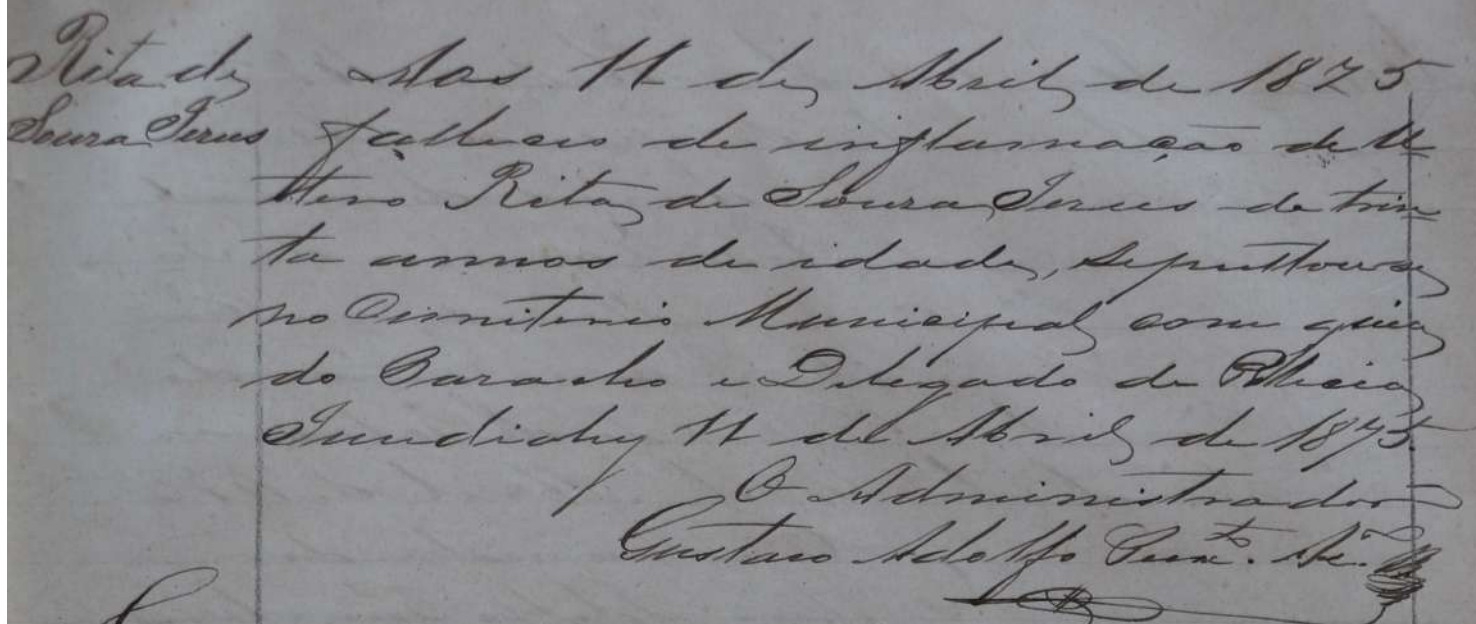 Rita de
Souza Jesus
Aos 11 de Abril de 1875
falleceu de inflamação de U
tero Rita de Souza Jesus de trin
ta annos de idade, sepultouse
no Cimiterio Municipal com guia
do Parocho e Delegado de Policia
Jundiahy 11 de Abril de 1875.
O Administrador
Gustavo Adolfo